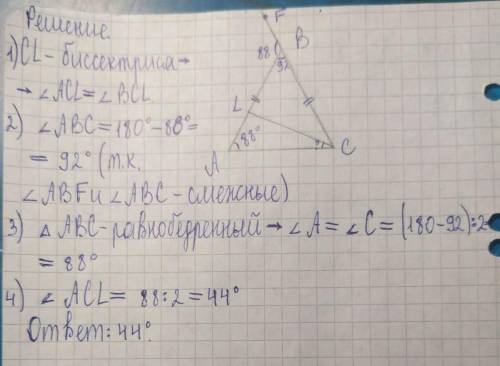 Решение.
1) CL - биссектриса →
→ ∠ACL = ∠BCL
2) ∠ABC = 180° - 88° =
= 92° (т.к.
∠ABF и ∠ABC - смежные)
3) △ ABC - равнобедренный → ∠A = ∠C = (180 - 92) : 2
= 88°
4) ∠ ACL = 88 : 2 = 44°
Ответ: 44°.
F
B
88
92
L
A
88°
C